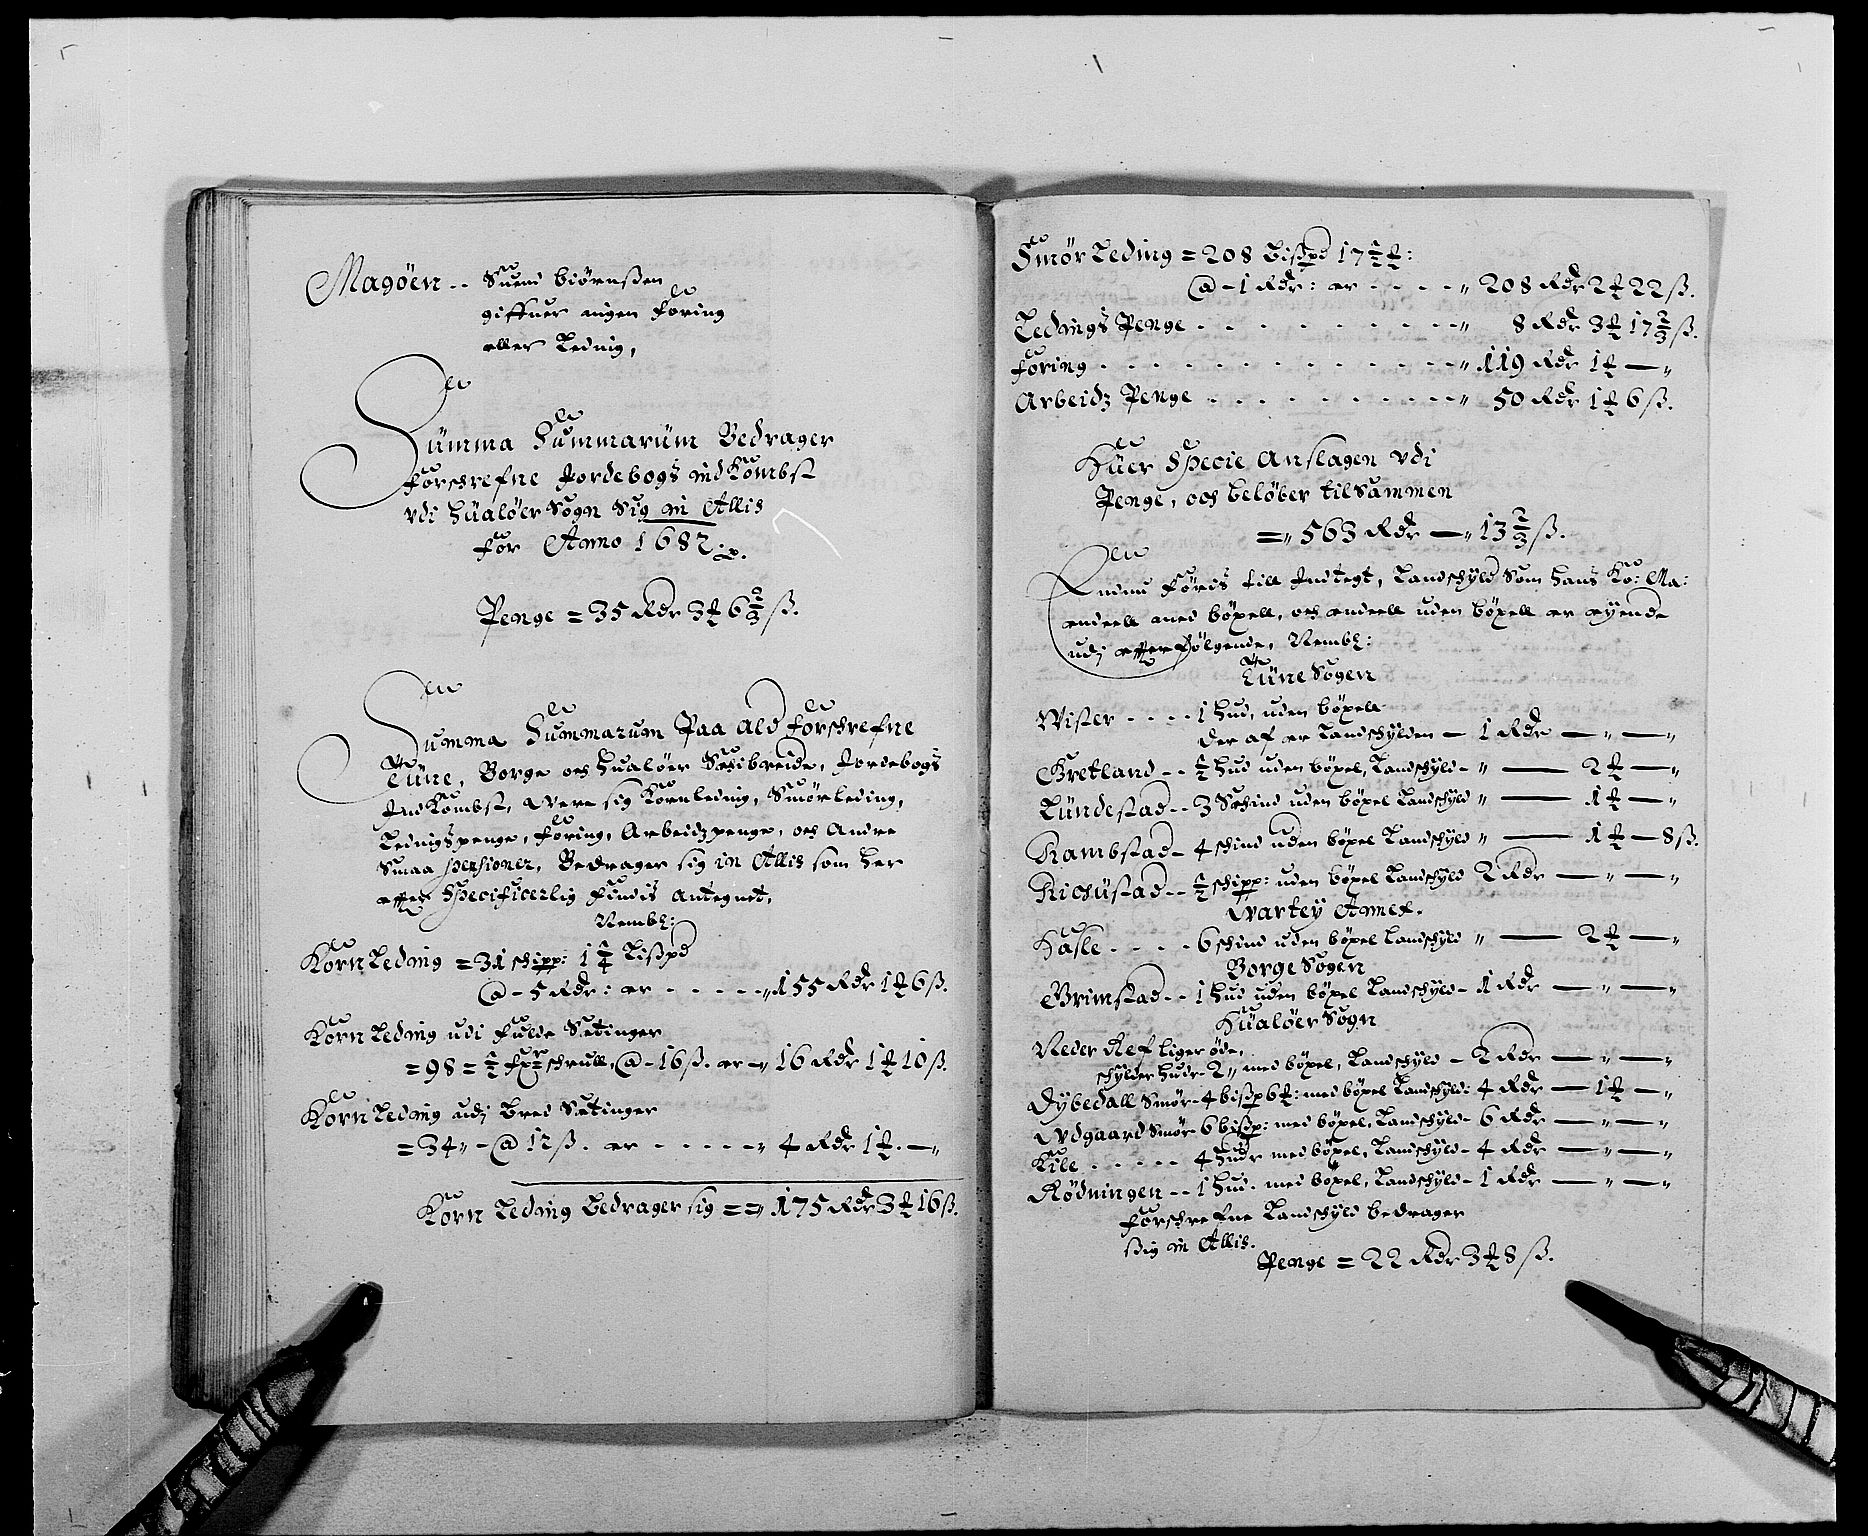 Magöen -- Suend biörnßen
giffuer ingen foring
eller Leding,
Summa Summarum Bedrager
forschrefne Jordebogs indKombst
vdi Hualöer Sogn Sig in Allis
for Anno 1682
Penge = 35 Rdr 3 ℔ 6 2/3 ß.
Summa Summarum Paa ald forschrefne
Tune, Borge och Hualöer Schibreide, Jordebogs
IndKombst, Were sig Kornleding, Smörleding,
Ledingspenge, foring, Arbeidzpenge, och Andre
Smaa pensioner, Bedrager sig in Allis som her
effter Specificerlig findis Antegnet,
Nembl:
Korn Leding = 31 schipp: 1 1/4 Lißpd
@ - 5 Rdr: er - - - - - „ 155 Rdr 1 ℔ 6 ß.
Korn Leding udi fulde Setinger
= 98 = 1/2 schrull, @ - 16 ß. er - „ 16 Rdr 1 ℔ 10 ß.
Korn Leding udj bred Setinger
= 34 „ - @ 12 ß. er - - - - - „ 4 Rdr 1 ℔. — „
Korn Leding bedrager sig = = „ 175 Rdr 3 ℔ 16 ß.
Smör Leding = 208 bißpd 17 1/2 ℔:
@ - 1 Rdr: er - - - - „ 208 Rdr 2 ℔ 22 ß.
Ledings Penge - - - - - - - - „ 8 Rdr 3 ℔ 17 2/3 ß.
foring - - - - - - - - - - - „ 119 Rdr 1 ℔ — „
Arbeidz Penge - - - - - - - - „ 50 Rdr 1 ℔ 6 ß.
Huer Specie Anslagen vdi
Penge, och beløber tilsammen
= „ 563 Rdr — „ 13 2/3 ß.
Endnu föris till Indtegt, Landschyld Som hans Ko: Ma:
endeell med böxell, och endeell uden böxell er eyende
udj effterfölgende, Nembl:
Tune Sogen
Wister - - - - 1 hud, uden böxell
der af er Landschylden - 1 Rdr — „ — „
Gretland - - 1/2 hud uden böxel, Landschyld - „ — 2 ℔ — „
Lundestad - - 3 Schind uden böxel Landschyld „ — 1 ℔ — „
Rambstad - 4 schind uden böxel Landschyld „ — 1 ℔ — 8 ß.
Richustad - - 1/2 schipp: uden böxel Landschyld 2 Rdr — „ — „
Wartey Annex.
Hasle - - - - 6 schind uden böxel Landschyld „ — 2 ℔ — „
Borge Sogen
Grimstad - - 1 hud uden böxel Landschyld - 1 Rdr — „ — „
Hualöer Sogn
Neder Ref liger öde,
schylder huder - 2 „ med böxel, Landschyld - 2 Rdr — „ — „
Dybedall Smör - 4 bißp 6 ℔: med böxel Landschyld: 4 Rdr — 1 ℔ — „
Wdgaard Smör - 6 bißp: med böxel, Landschyld - 6 Rdr — „ — „
Kile - - - - - 4 hudr med böxel, Landschyld - 4 Rdr — „ — „
Rödningen - - 1 hud. med böxel, Landschyld - 1 Rdr — „ — „
forschrefne Landschyld bedrager
ßig in Allis.
Penge = 22 Rdr 3 ℔ 8 ß.